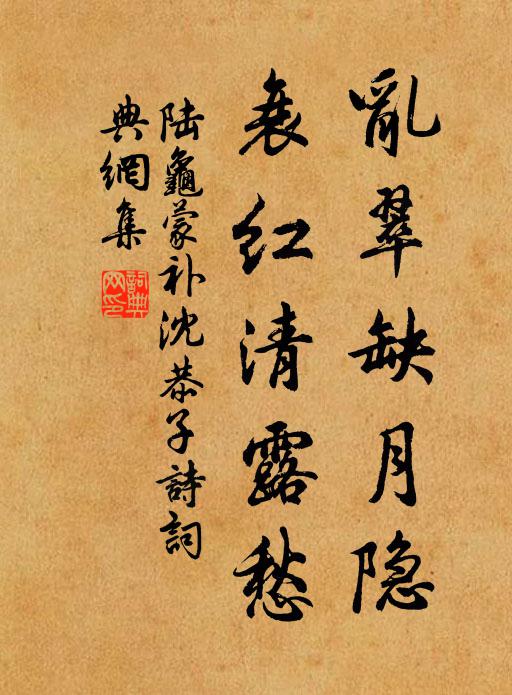 亂翠缺月隐
衰红清露愁
陆龜蒙补沈恭子詩詞
典網集
詞典网印